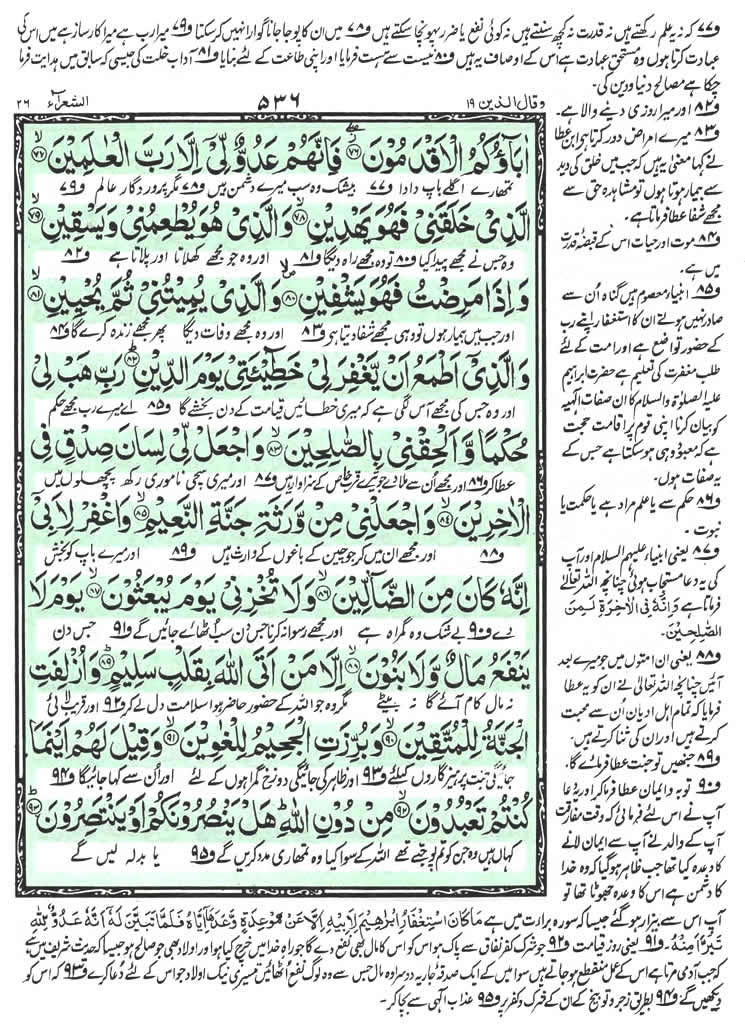 و۷۷ کہ نہ یہ علم رکھتے ہیں نہ قدرت نہ کچھ سنتے ہیں نہ کوئی نفع یا ضرر پہونچا سکتے ہیں و۷۸ میں ان کا پوجا جانا گوارا نہیں کرسکتا و۷۹ میرا رب ہے میرا کارساز ہے میں اس کی
عبادت کرتا ہوں وہ مستحق عبادت ہے اس کے اوصاف یہ ہیں و۸۰ نیست سے ہست فرمایا اور اپنی طاعت کے لئے بنایا و۸۱ آداب خلت کی جیسی کہ سابق میں ہدایت فرما
چکا ہے مصالح دنیا و دین کی۔
وقال الذین ۱۹
۵۳۶
الشعرآء ۲۶
و۸۲ اور میرا روزی دینے والا ہے۔
و۸۳ میرے امراض دور کرتا ہے ابن عطا
نے کہا معنی یہ ہیں کہ جب میں خلق کی دید
سے بیمار ہوتا ہوں تو مشاہدہ حق سے
مجھے شفا عطا فرماتا ہے۔
و۸۴ موت اور حیات اس کے قبضہ قدرت
میں ہے۔
و۸۵ انبیاء معصوم ہیں گناہ اُن سے
صادر نہیں ہوتے ان کا استغفار اپنے رب
کے حضور تواضع ہے اور امت کے لئے
طلب مغفرت کی تعلیم ہے حضرت ابراہیم
علیہ الصلوٰۃ والسلام کا ان صفات الٰہیہ
کو بیان کرنا اپنی قوم پر اقامت حجت
ہے کہ معبود وہی ہوسکتا ہے جس کے
یہ صفات ہوں۔
و۸۶ حکم سے یا علم مراد ہے یا حکمت یا
نبوت۔
و۸۷ یعنی انبیاء علیہم السلام اور آپ
کی یہ دعا مستجاب ہوئی چنانچہ اللہ تعالیٰ
فرماتا ہے وَاِنَّهٗ فِی الْاٰخِرَةِ لَمِنَ
الصّٰلِحِیْنَ۔
و۸۸ یعنی ان امتوں میں جو میرے بعد
آئیں چنانچہ اللہ تعالیٰ نے ان کو یہ عطا
فرمایا کہ تمام اہل ادیان اُن سے محبت
کرتے ہیں اور ان کی ثنا کرتے ہیں۔
و۸۹ جنھیں تو جنت عطا فرمائے گا۔
و۹۰ توبہ و ایمان عطا فرما کر اور دعا
آپ نے اس لئے فرمائی کہ وقت مفارقت
آپ کے والد نے آپ سے ایمان لانے
کا وعدہ کیا تھا جب ظاہر ہوگیا کہ وہ خدا
کا دشمن ہے اس کا وعدہ جھوٹا تھا تو
اٰبَآؤُكُمُ الْاَقْدَمُوْنَ ﴿۷۶﴾ فَاِنَّهُمْ عَدُوٌّ لِّیْۤ اِلَّا رَبَّ الْعٰلَمِیْنَ ﴿۷۷﴾
تمھارے اگلے باپ دادا و۷۷ بیشک وہ سب میرے دشمن ہیں و۷۸ مگر پروردگار عالم و۷۹
الَّذِیْ خَلَقَنِیْ فَهُوَ یَهْدِیْنِ ﴿۷۸﴾ وَالَّذِیْ هُوَ یُطْعِمُنِیْ وَیَسْقِیْنِ ﴿۷۹﴾
وہ جس نے مجھے پیدا کیا و۸۰ تو وہ مجھے راہ دیگا و۸۱ اور وہ جو مجھے کھلاتا اور پلاتا ہے و۸۲
وَاِذَا مَرِضْتُ فَهُوَ یَشْفِیْنِ ﴿۸۰﴾ وَالَّذِیْ یُمِیْتُنِیْ ثُمَّ یُحْیِیْنِ ﴿۸۱﴾
اور جب میں بیمار ہوں تو وہی مجھے شفا دیتا ہے و۸۳ اور وہ مجھے وفات دیگا پھر مجھے زندہ کرے گا و۸۴
وَالَّذِیْۤ اَطْمَعُ اَنْ یَّغْفِرَ لِیْ خَطِیْٓـَٔتِیْ یَوْمَ الدِّیْنِ ﴿۸۲﴾ رَبِّ هَبْ لِیْ
اور وہ جس کی مجھے آس لگی ہے کہ میری خطائیں قیامت کے دن بخشے گا و۸۵ اے میرے رب مجھے حکم
حُكْمًا وَّاَلْحِقْنِیْ بِالصّٰلِحِیْنَ ﴿۸۳﴾ وَاجْعَلْ لِّیْ لِسَانَ صِدْقٍ فِی
عطا کر و۸۶ اور مجھے اُن سے ملادے جو تیرے قرب خاص کے سزاوار ہیں و۸۷ اور میری سچی ناموری رکھ پچھلوں میں
الْاٰخِرِیْنَ ﴿۸۴﴾ وَاجْعَلْنِیْ مِنْ وَّرَثَةِ جَنَّةِ النَّعِیْمِ ﴿۸۵﴾ وَاغْفِرْ لِاَبِیْۤ
و۸۸ اور مجھے ان میں کر جو چین کے باغوں کے وارث ہیں و۸۹ اور میرے باپ کو بخش
اِنَّهٗ كَانَ مِنَ الضَّآلِّیْنَ ﴿۸۶﴾ وَلَا تُخْزِنِیْ یَوْمَ یُبْعَثُوْنَ ﴿۸۷﴾ یَوْمَ لَا
دے و۹۰ بے شک وہ گمراہ ہے اور مجھے رسوا نہ کرنا جس دن سب اُٹھائے جائیں گے و۹۱ جس دن
یَنْفَعُ مَالٌ وَّلَا بَنُوْنَ ﴿۸۸﴾ اِلَّا مَنْ اَتَی اللّٰهَ بِقَلْبٍ سَلِیْمٍ ﴿۸۹﴾ وَاُزْلِفَتِ
نہ مال کام آئے گا نہ بیٹے مگر وہ جو اللہ کے حضور حاضر ہوا سلامت دل لے کر و۹۲ اور قریب لائی
الْجَنَّةُ لِلْمُتَّقِیْنَ ﴿۹۰﴾ وَبُرِّزَتِ الْجَحِیْمُ لِلْغٰوِیْنَ ﴿۹۱﴾ وَقِیْلَ لَهُمْ اَیْنَمَا
جائے گی جنت پرہیزگاروں کیلئے و۹۳ اور ظاہر کی جائیگی دوزخ گمراہوں کے لئے اور اُن سے کہا جائیگا و۹۴
كُنْتُمْ تَعْبُدُوْنَ ﴿۹۲﴾ مِنْ دُوْنِ اللّٰهِ هَلْ یَنْصُرُوْنَكُمْ اَوْ یَنْتَصِرُوْنَ ﴿۹۳﴾
کہاں ہیں وہ جن کو تم پوجتے تھے اللہ کے سوا کیا وہ تمھاری مدد کریں گے و۹۵ یا بدلہ لیں گے
آپ اس سے بیزار ہوگئے جیسا کہ سورہ برارت میں ہے مَا كَانَ اسْتِغْفَارُ اِبْرٰهِیْمَ لِاَبِیْهِ اِلَّا عَنْ مَّوْعِدَةٍ وَّعَدَهَاۤ اِیَّاهُ فَلَمَّا تَبَیَّنَ لَهٗۤ اَنَّهٗ عَدُوٌّ لِّلّٰهِ
تَبَرَّاَ مِنْهُ۔ و۹۱ یعنی روز قیامت و۹۲ جو شرک کفر نفاق سے پاک ہو اس کو اس کا مال بھی نفع دے گا جو راہ خدا میں خرچ کیا ہو اور اولاد بھی جو صالح ہو جیسا کہ حدیث شریف میں ہے
کہ جب آدمی مرتا ہے اس کے عمل منقطع ہو جاتے ہیں سوا تین کے ایک صدقہ جاریہ دوسرا وہ مال جس سے وہ لوگ نفع اُٹھائیں تیسری نیک اولاد جو اس کے لئے دعا کرے و۹۳ کہ اس کو
دیکھیں گے و۹۴ بطریق زجر و توبیخ کے ان کے شرک و کفر پر و۹۵ عذاب الٰہی سے بچا کر۔